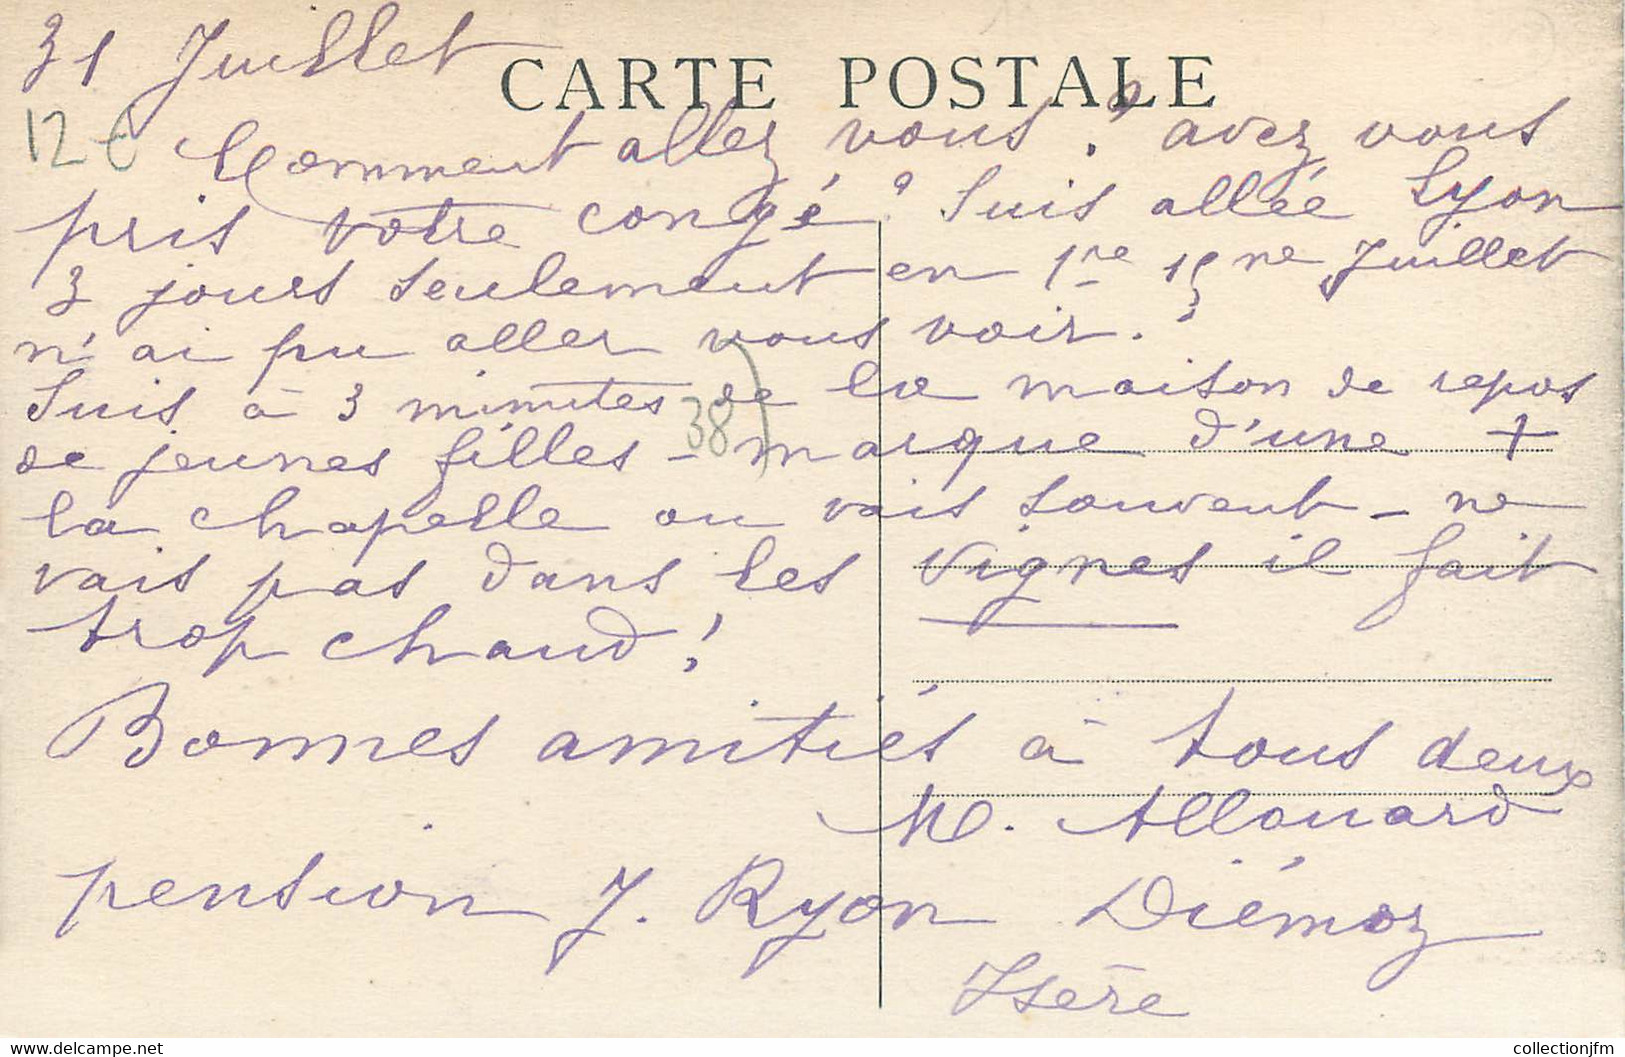 31 Juillet
CARTE POSTALE
12 €
Comment allez vous ? avez vous
pris votre congé ? Suis allée Lyon
3 jours seulement en 1re 15ne Juillet
n'ai pu aller vous voir.
Suis à 3 minutes de la maison de repos
de jeunes filles - marque d'une +
38)
la chapelle ou vais souvent - ne
vais pas dans les vignes il fait
trop chaud !
Bonnes amitiés à tous deux
M. Allouard
pension J. Ryon Diémoz
Isère
www.delcampe.net
collectionjfm